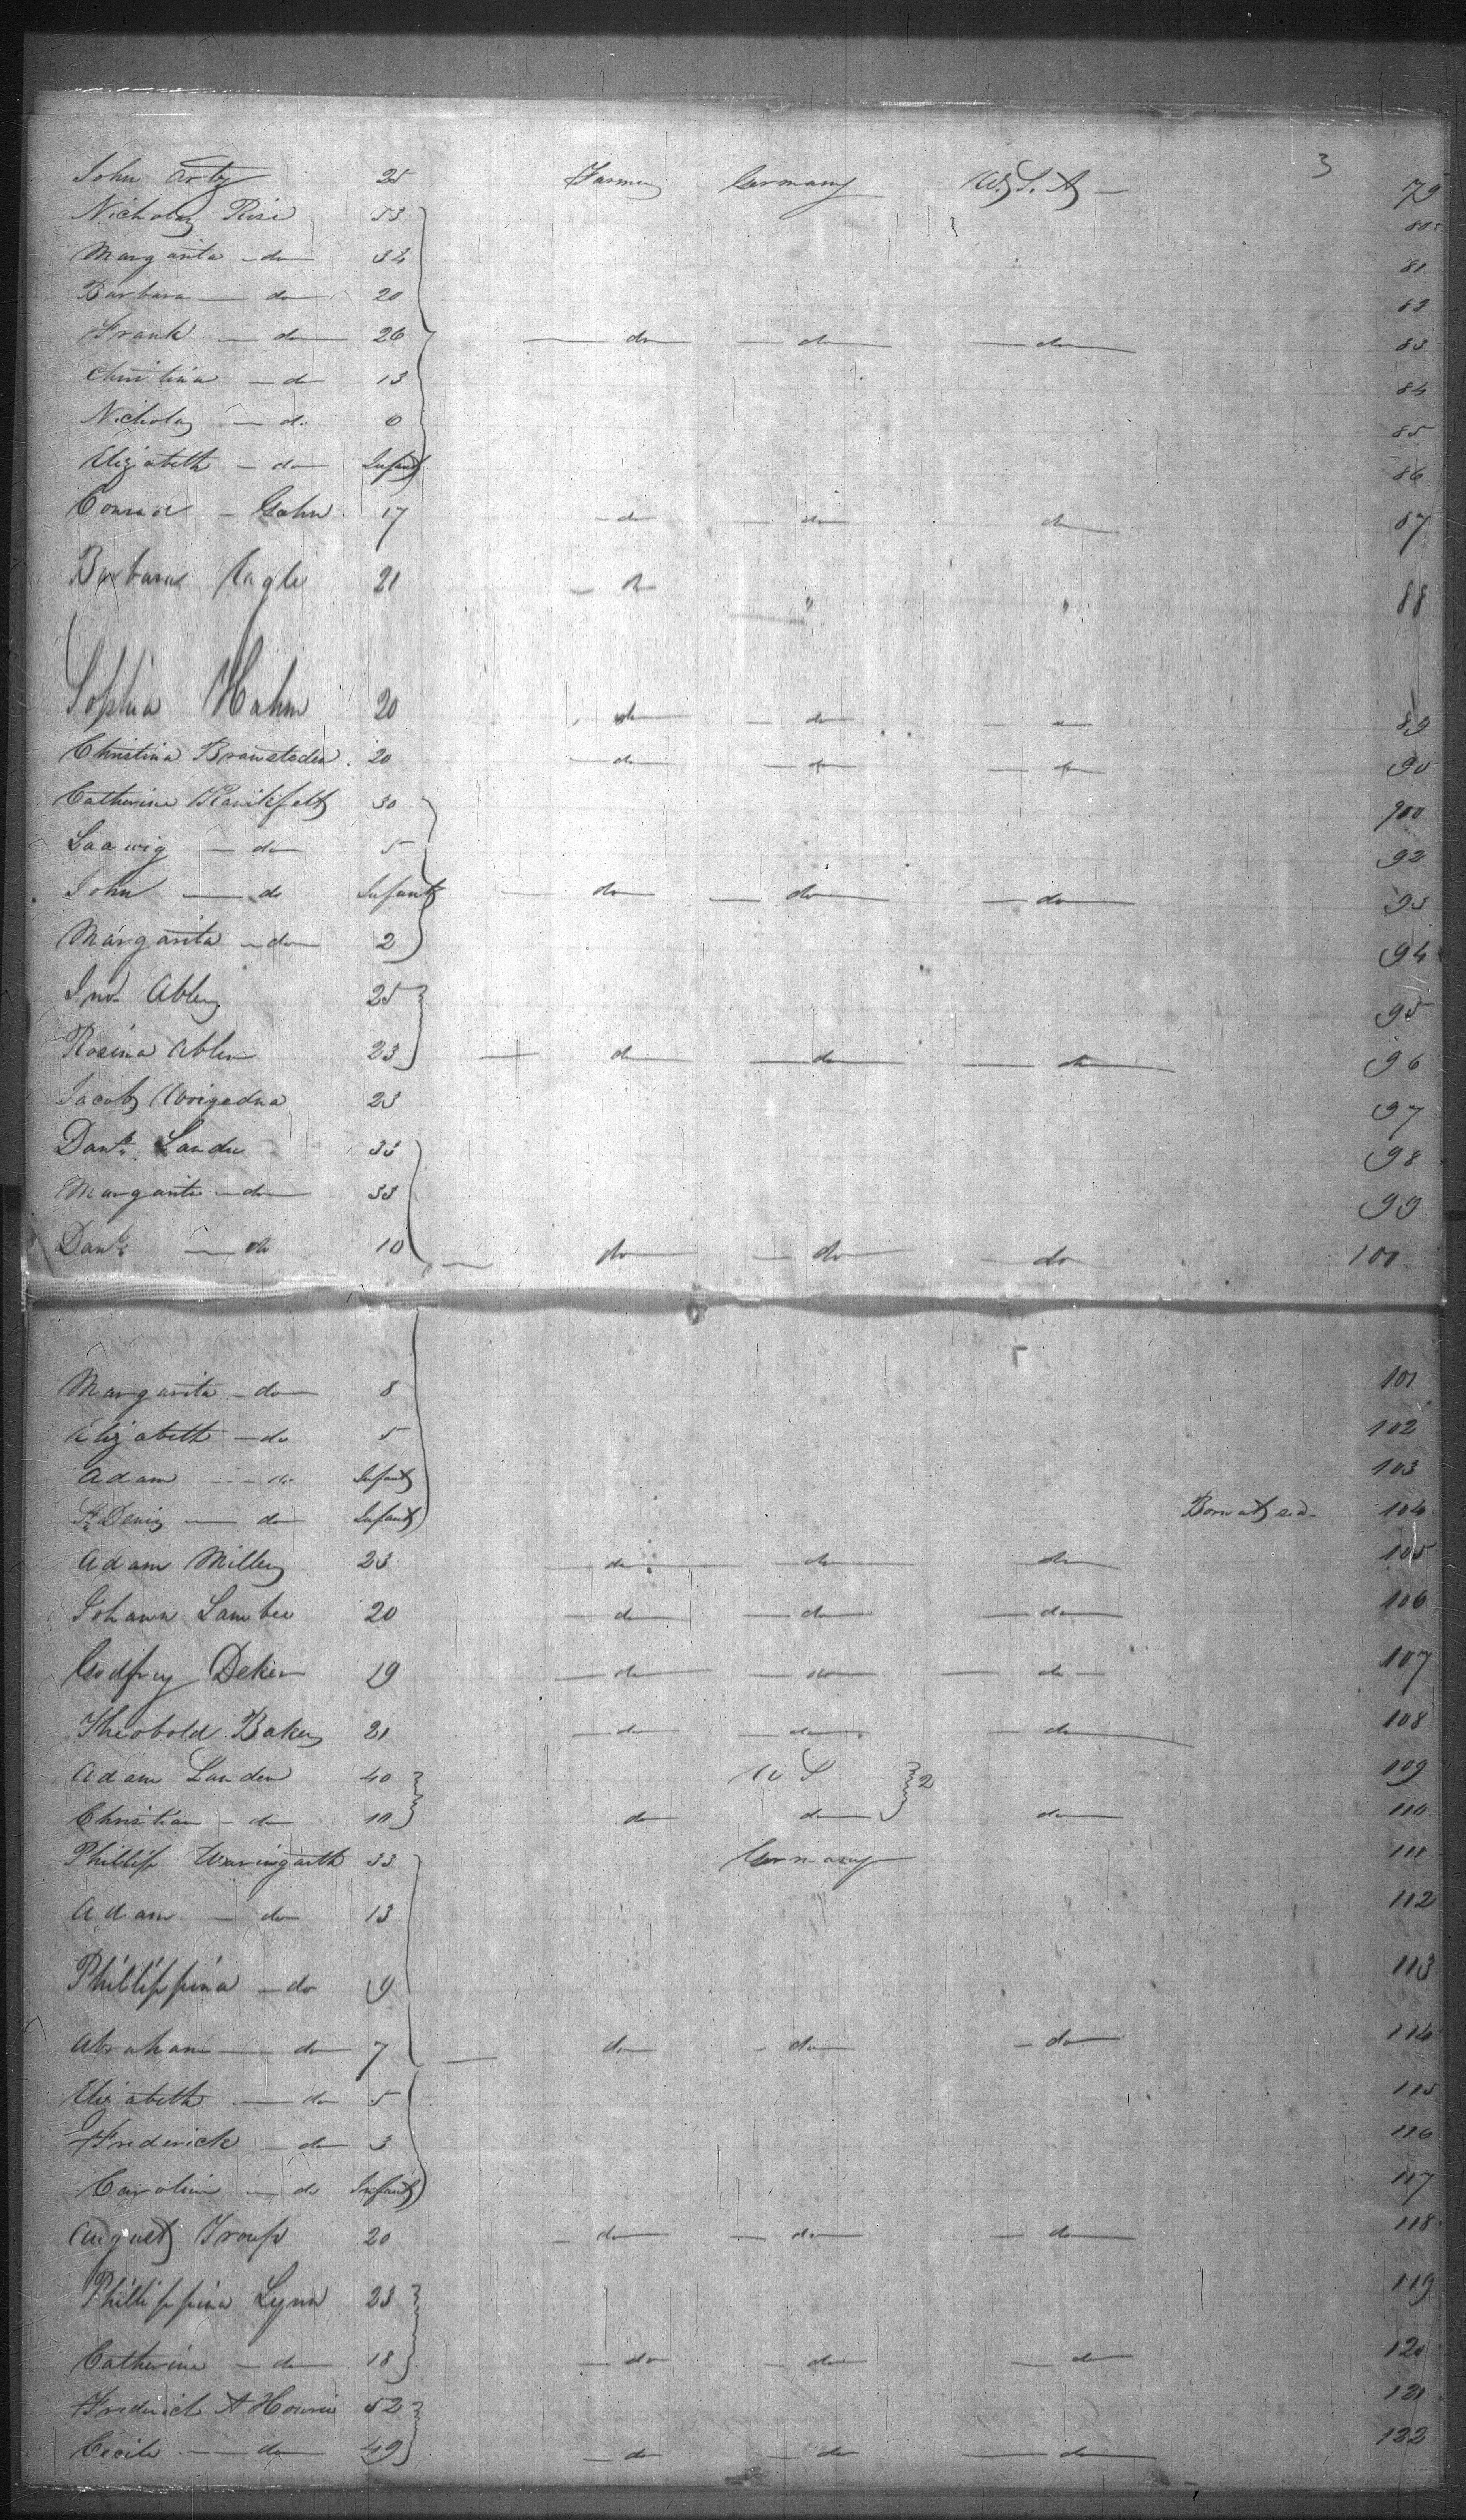 3
John Arty 25 Farmer Germany U.S.A 79
Nicholas Rise 53 80
Margarita do 34 81
Barbara do 20 82
Frank do 26 do do do 83
Christina do 13 84
Nicholas do 0 85
Elizabeth do Infant 86
Conrad Gahn 17 do do do 87
Barbara Eagle 21 do " " 88
Sophia Hahn 20 do do do 89
Christina 20 do do do 90
Catherine 30 900
do 5 92
John do Infant do do do 93
Margarita do 2 94
Jno. Ablen 25 95
Rosina Ablen 23 do do do 96
Jacob 23 97
Danl. Lander 33 98
Margarita do 33 99
Danl. do 10 do do do 100
Margarita do 8 101
Elizabeth do 5 102
Adam do Infant 103
St. Denis do Infant Born at sea 104
Adam Miller 23 do do do 105
Johann Lambee 20 do do do 106
Godfrey Deker 19 do do do 107
Theobold Baker 21 do do do 108
Adam Lander 40 U S 2 109
Christian do 10 do do do 110
Phillip Waringarth 33 Germany 111
Adam do 13 112
Phillippina do 9 113
Abraham do 7 do do do 114
Elizabeth do 5 115
Frederick do 3 116
Carolin do Infant 117
August Troup 20 do do do 118
Phillippina Lynn 23 119
Catherine do 18 do do do 120
Frederick A 52 121
Cecile do 49 do do do 122